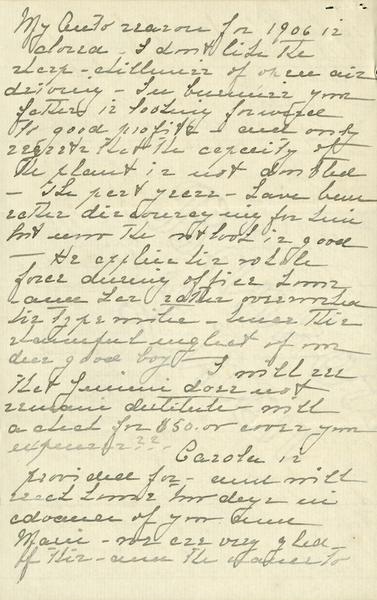 My Auto season for 1906 is
closed - I don't like the
sharp - chilliness of open air
driving - In business your
father is looking forward
to good profits - and only
regrets that the capacity of
the plant is not doubled
- The past years - have been
rather discouraging for him
but now the outlook is good
- He applies his whole
force during office hours
and has rather overworked
his typewriter - hence this
shameful neglect of our
dear good boy - I will see
that Jimmie does not
remain destitute - will
a check for $50. or cover your
expenses??
Carola is
provided for - and will
reach home two days in
advance of you and
Marie - we are very glad
of this - and the chance to